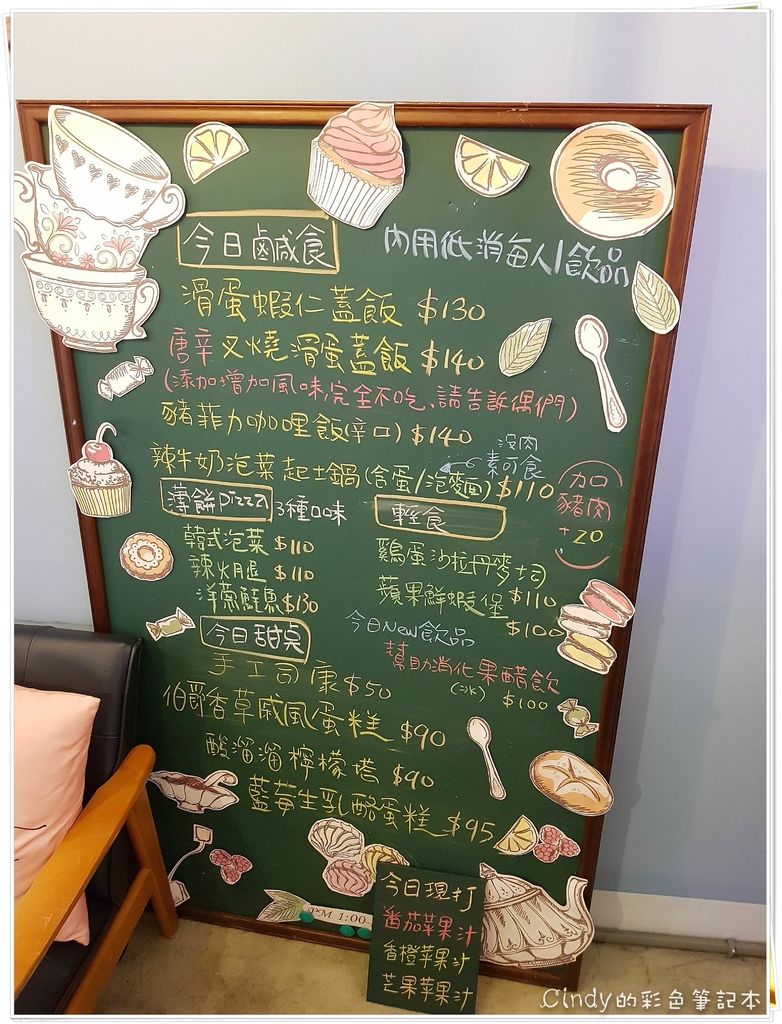 今日鹹食
內用低消每人1飲品
滑蛋蝦仁蓋飯 $130
唐辛叉燒滑蛋蓋飯 $140
(添加增加風味,完全不吃、請告訴偶們)
豬菲力咖哩飯(辛口) $140
沒肉
素可食
辣牛奶泡菜起士鍋(含蛋/泡麵) $110
加口
豬肉
+20
薄餅Pizza 3種口味
韓式泡菜 $110
辣火腿 $110
洋蔥鮪魚 $130
輕食
雞蛋沙拉丹麥土司
$110
蘋果鮮蝦堡
$100
今日New飲品
幫助消化果醋飲
(冰) $100
今日甜桌
手工司康 $50
伯爵香草戚風蛋糕 $90
酸溜溜檸檬塔 $90
藍莓生乳酪蛋糕 $95
PM 1:00~
今日現打
番茄苹果汁
香橙苹果汁
芒果苹果汁
Cindy的彩色筆記本